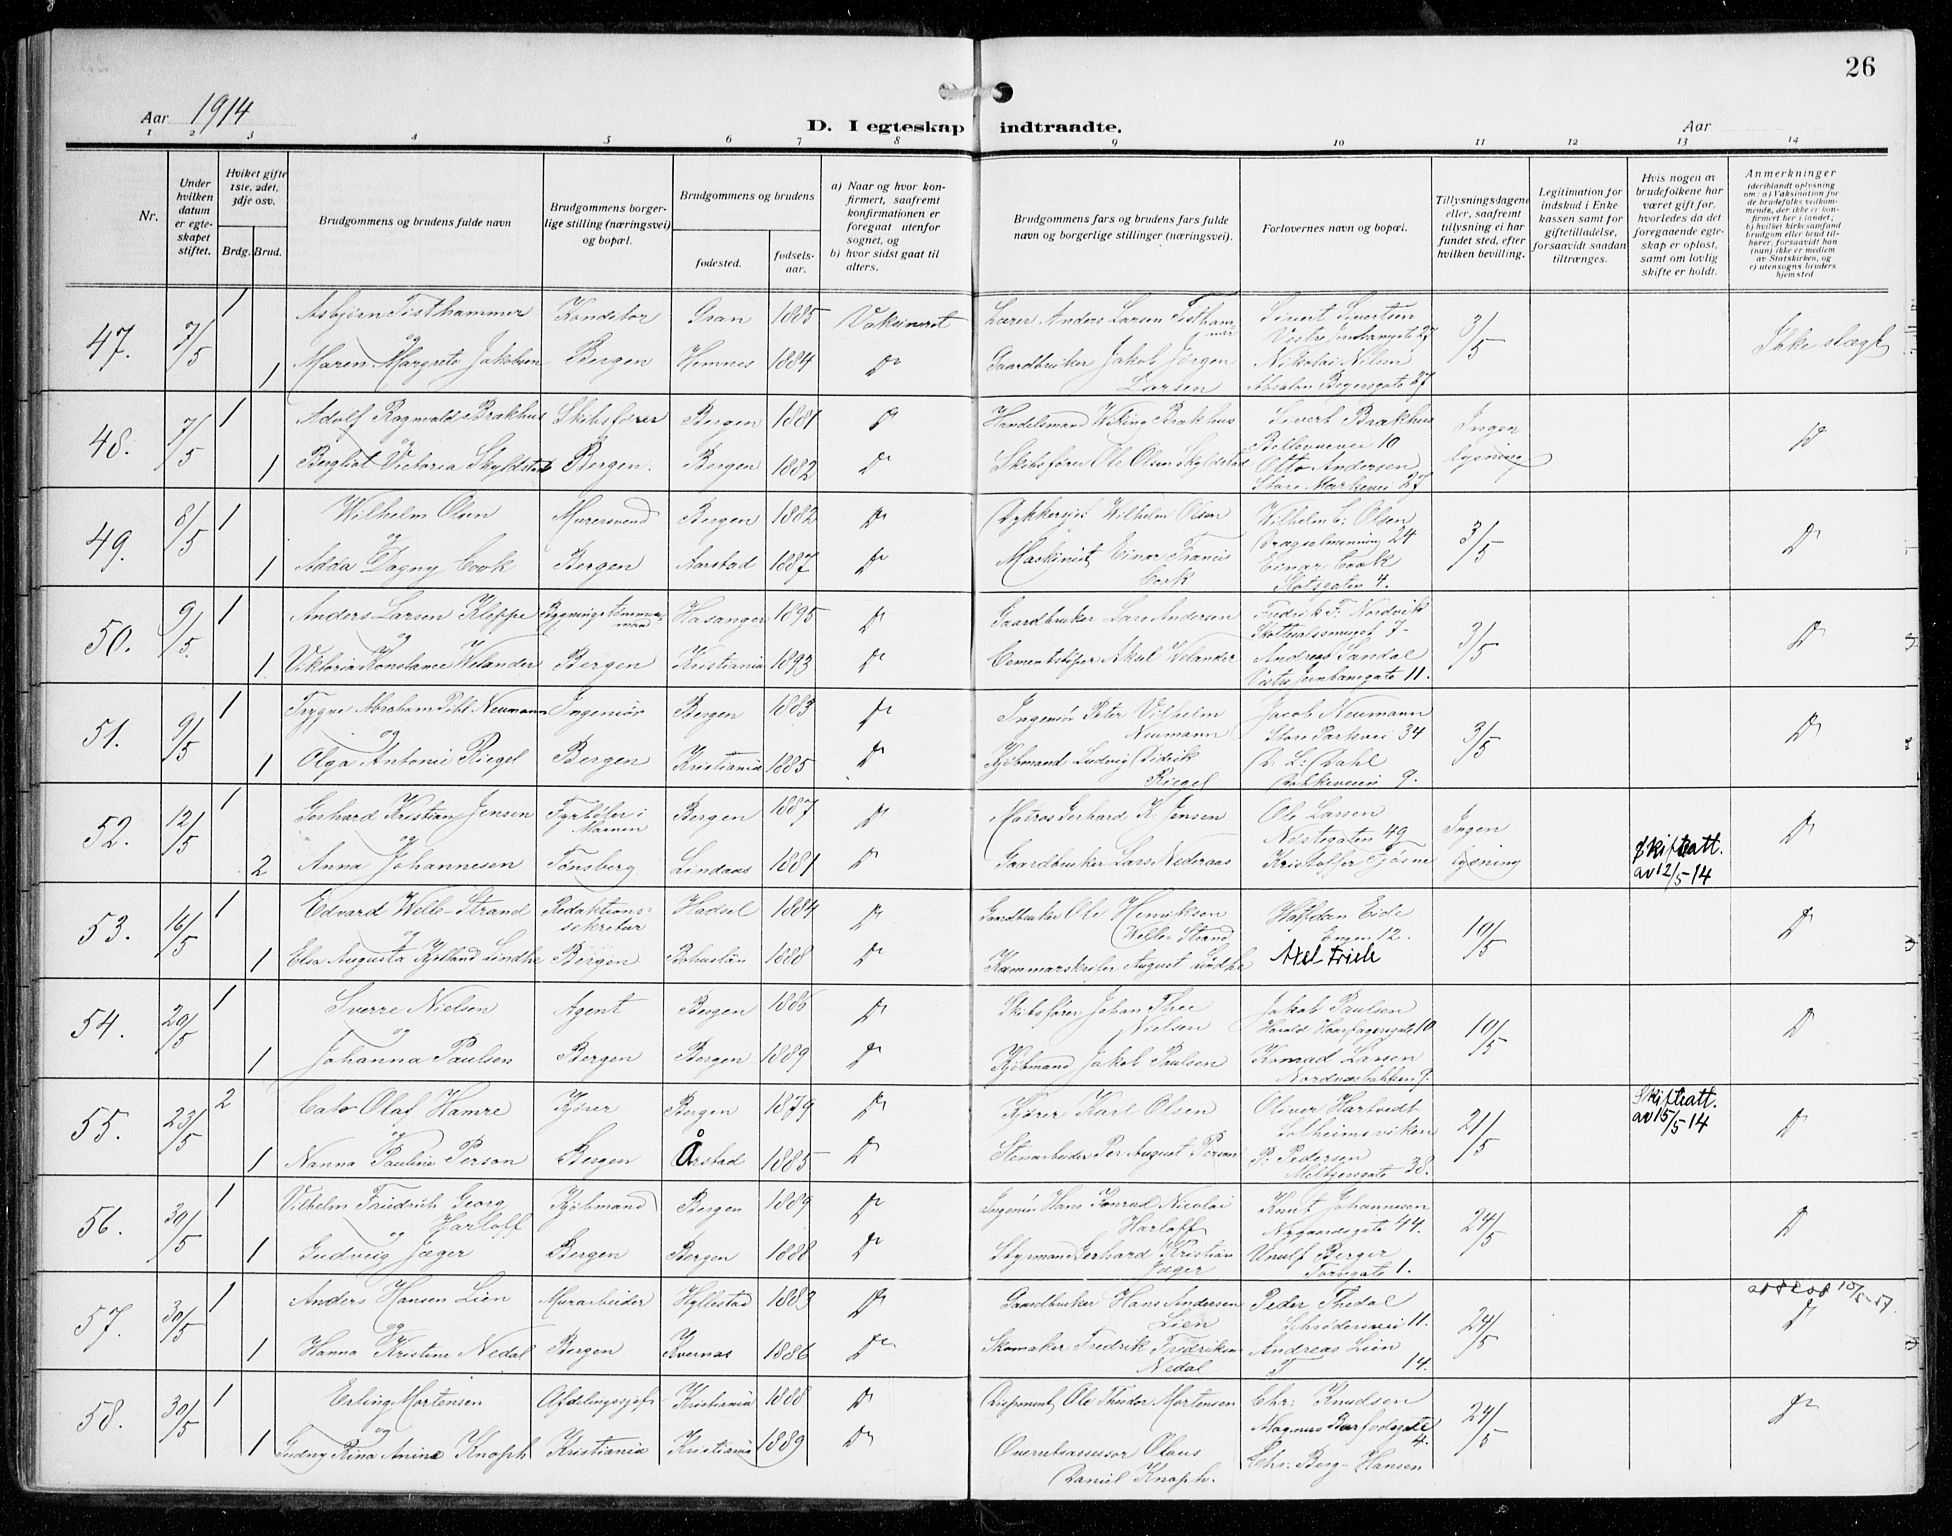 26
Aar 1914
D. I egteskap indtraadte.
Aar
1 2 3 4 5 6 7 8 9 10 11 12 13 14
Nr.
Under hvilken datum er egteskapet stiftet.
Hviket gifte 1ste, 2det, 3dje osv.
Brdg. Brud.
Brudgommens og brudens fulde navn
Brudgommens borgerlige stilling (næringsvei) og bopæl.
Brudgommens og brudens
fødested.
fødselsaar.
a) Naar og hvor konfirmert, saafremt konfirmationen er foregaat utenfor sognet, og
b) hvor sidst gaat til alters.
Brudgommens fars og brudens fars fulde navn og borgerlige stillinger (næringsvei).
Forlovernes navn og bopæl.
Tillysningsdagene eller, saafremt tillysning ei har fundet sted, efter hvilken bevilling.
Legitimation for indskud i Enkekassen samt for giftetilladelse, forsaavidt saadan tiltrænges.
Hvis nogen av brudefolkene har været gift før, hvorledes da det foregaaende egteskap er opløst, samt om lovlig skifte er holdt.
Anmerkninger (deriblandt oplysning om: a) Vaksination for de brudefolks vedkommende, der ikke er konfirmert her i landet; b) hvilket kirkesamfund brudgom eller brud tilhører, forsaavidt han (hun) ikke er medlem av Statskirken, og c) utensogns bruders hjemsted
47. 7/5 1 Asbjørn Fisthammer Konditor Gran 1885 Vaksineret Lærer Anders Larsen Fisthammer Sivert Sivertsen 3/5 Ikke slægt
og Vestre Jernbanegate 27
1 Maren Margrete Jakobsen Bergen Hemnes 1884 Do Gaardbruker Jakob Jørgen Larsen Nikolai Nilsen
Absalon Beyersgate 27
48. 7/5 1 Adolf Ragnvald Brakhus Skibsfører Bergen 1881 Do Handelsmand Wiking Brakhus Sivert Brakhus Ingen lysning Do
og Bellevuevei 10
1 Bergliot Victoria Skyldstad Bergen. Bergen 1882 Do Skibsfører Ole Olsen Skyldstad Otto Andersen
Store Markevei 27
49. 8/5 1 Wilhelm Olsen Murersvend Bergen 1882 Do Wilhelm Olsen Wilhelm C. Olsen 3/5 Do
og Dragsalmenning 24
1 Adda Dagny Cook Bergen Aarstad 1887 Do Maskinist Einar Francis Cook Einar Cook
4.
50. 9/5. 1 Anders Larsen Kleppe Bygningstømmermand Hasanger 1895 Do Gaardbruker Lars Andersen Fredrik F. Nordvik 3/5 Do
og 7
1 Viktoria Konstance Welander Bergen Kristiania 1893 Do Cementstøper Aksel Welander Andreas Sandal
Vestre Jernbanegate 11.
51. 9/5 1 Trygve Abraham Pihl Neumann Ingeniør Bergen 1883 Do Ingeniør Peter Vilhelm Neumann Jacob Neumann 3/5 Do
og Store Parkvei 34
1 Olga Antonie Riegel Bergen Kristiania 1885 Do Kjøbmand Ludvig Didrik Riegel D. L. Dahl
Kalkeveien 9.
52. 12/5 1 Gerhard Kristian Jensen Fyrbøter i Marinen Bergen 1887 Do Matros Gerhard K. Jensen Ole Larsen Ingen lysning Do
og Nøstegaten 49
2 Anna Johannesen Tønsberg Lindaas 1881 Do Gaardbruker Lars Nederaas Kristoffer Tjøsne
Skifteatt. av 12/5-14
53. 16/5 1 Edvard Welle-Strand Redaktionssekretær Hadsel 1884 Do Gaardbruker Ole Henriksen Welle-Strand Halfdan Eide 10/5 Do
og Engen 12.
1 Elsa Augusta Kjelland Lindhe Bergen Bohuslän 1888 Do Kammarskrifer August Lindhe Axel Friele
54. 20/5 1 Sverre Nielsen Agent Bergen 1886 Do Skibsfører Johan Thee Nielsen Jakob Paulsen 10/5 Do
og Harald Haarfagersgate 10
1 Johanna Paulsen Bergen Bergen 1889 Do Kjøbmand Jakob Paulsen Konrad Larsen
Nordnæsbakken 9.
55. 23/5 2 Cato Olaf Hamre Kjører Bergen 1879 Do Kjører Karl Olsen Oliver Hartvedt 21/5 Skifteatt. av 15/5-14 Do
og Solheimsviken
1 Nanna Pauline Person Bergen Årstad 1885 Do Stenarbeider Per August Person P. Pedersen
Møllersgate 38.
56. 30/5 1 Vilhelm Friedrich Georg Harloff Kjøbmand Bergen 1889 Do Ingeniør Hans Konrad Nicolai Harloff Knut Johannesen 24/5 Do
og Nygaardsgate 44.
1 Gudveig Jæger Bergen Bergen 1888 Do Styrmand Gerhard Kristian Jæger Unulf Berger
Torvgate 1.
57. 30/5 1 Anders Hansen Lien Murarbeider Hyllestad 1883 Do Gaardbruker Hans Andersen Lien Peder Thedal 24/5 Do
og 11.
1 Hanna Kristine Nedal Bergen Kvernes 1886 Do Skomaker Fredrik Fredriksen Nedal Andreas Lien
14.
58. 30/5 1 Erling Mortensen Afdelingschef Kristiania 1888 Do Disponent Ole Theodor Mortensen Chr. Knudsen 24/5 Do
og Magnus Barfodsgate 4.
1 Gudny Rina Anine Knoph Kristiania Kristiania 1889 Do Overretsassessor Olaus Daniel Knoph. Chr. Berg-Hansen